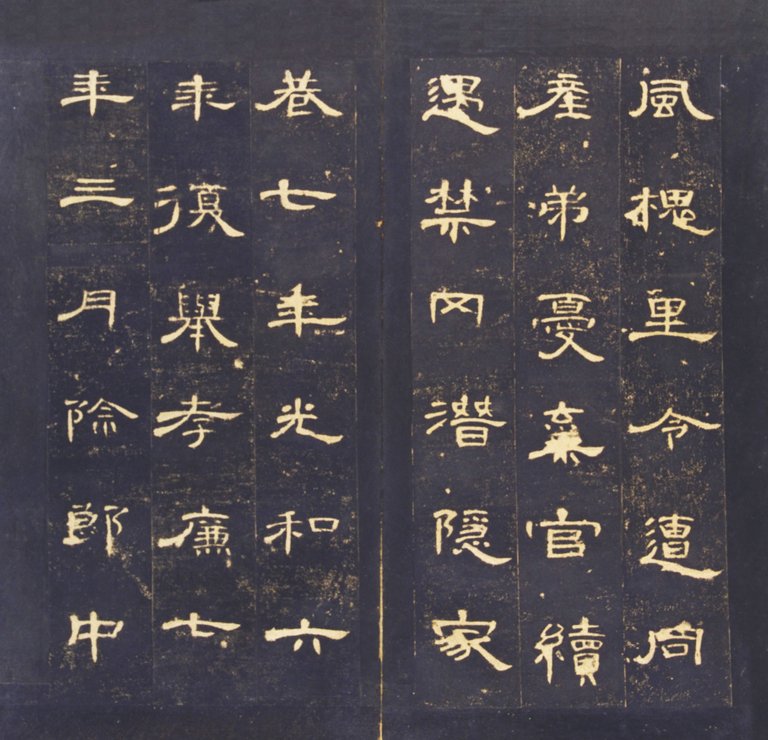 風槐里令遭同
産弟憂棄官續
遇禁冈潛隱家
巷七年光和六
年復舉孝廉七
年三月除郎中